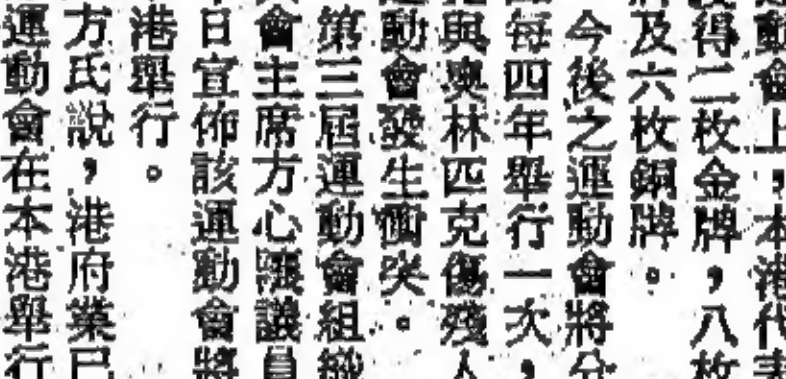 動會上，本港代表
獲得二枚金牌，八枚
牌及六枚銅牌。
今後之運動會將分
每四年舉行一次，
與奧林匹克傷殘人
運動會發生衝突。
第三屆運動會組織
會主席方心讓議員
日宣佈該運動會將
港舉行。
方氏說，港府業已
運動會在本港舉行